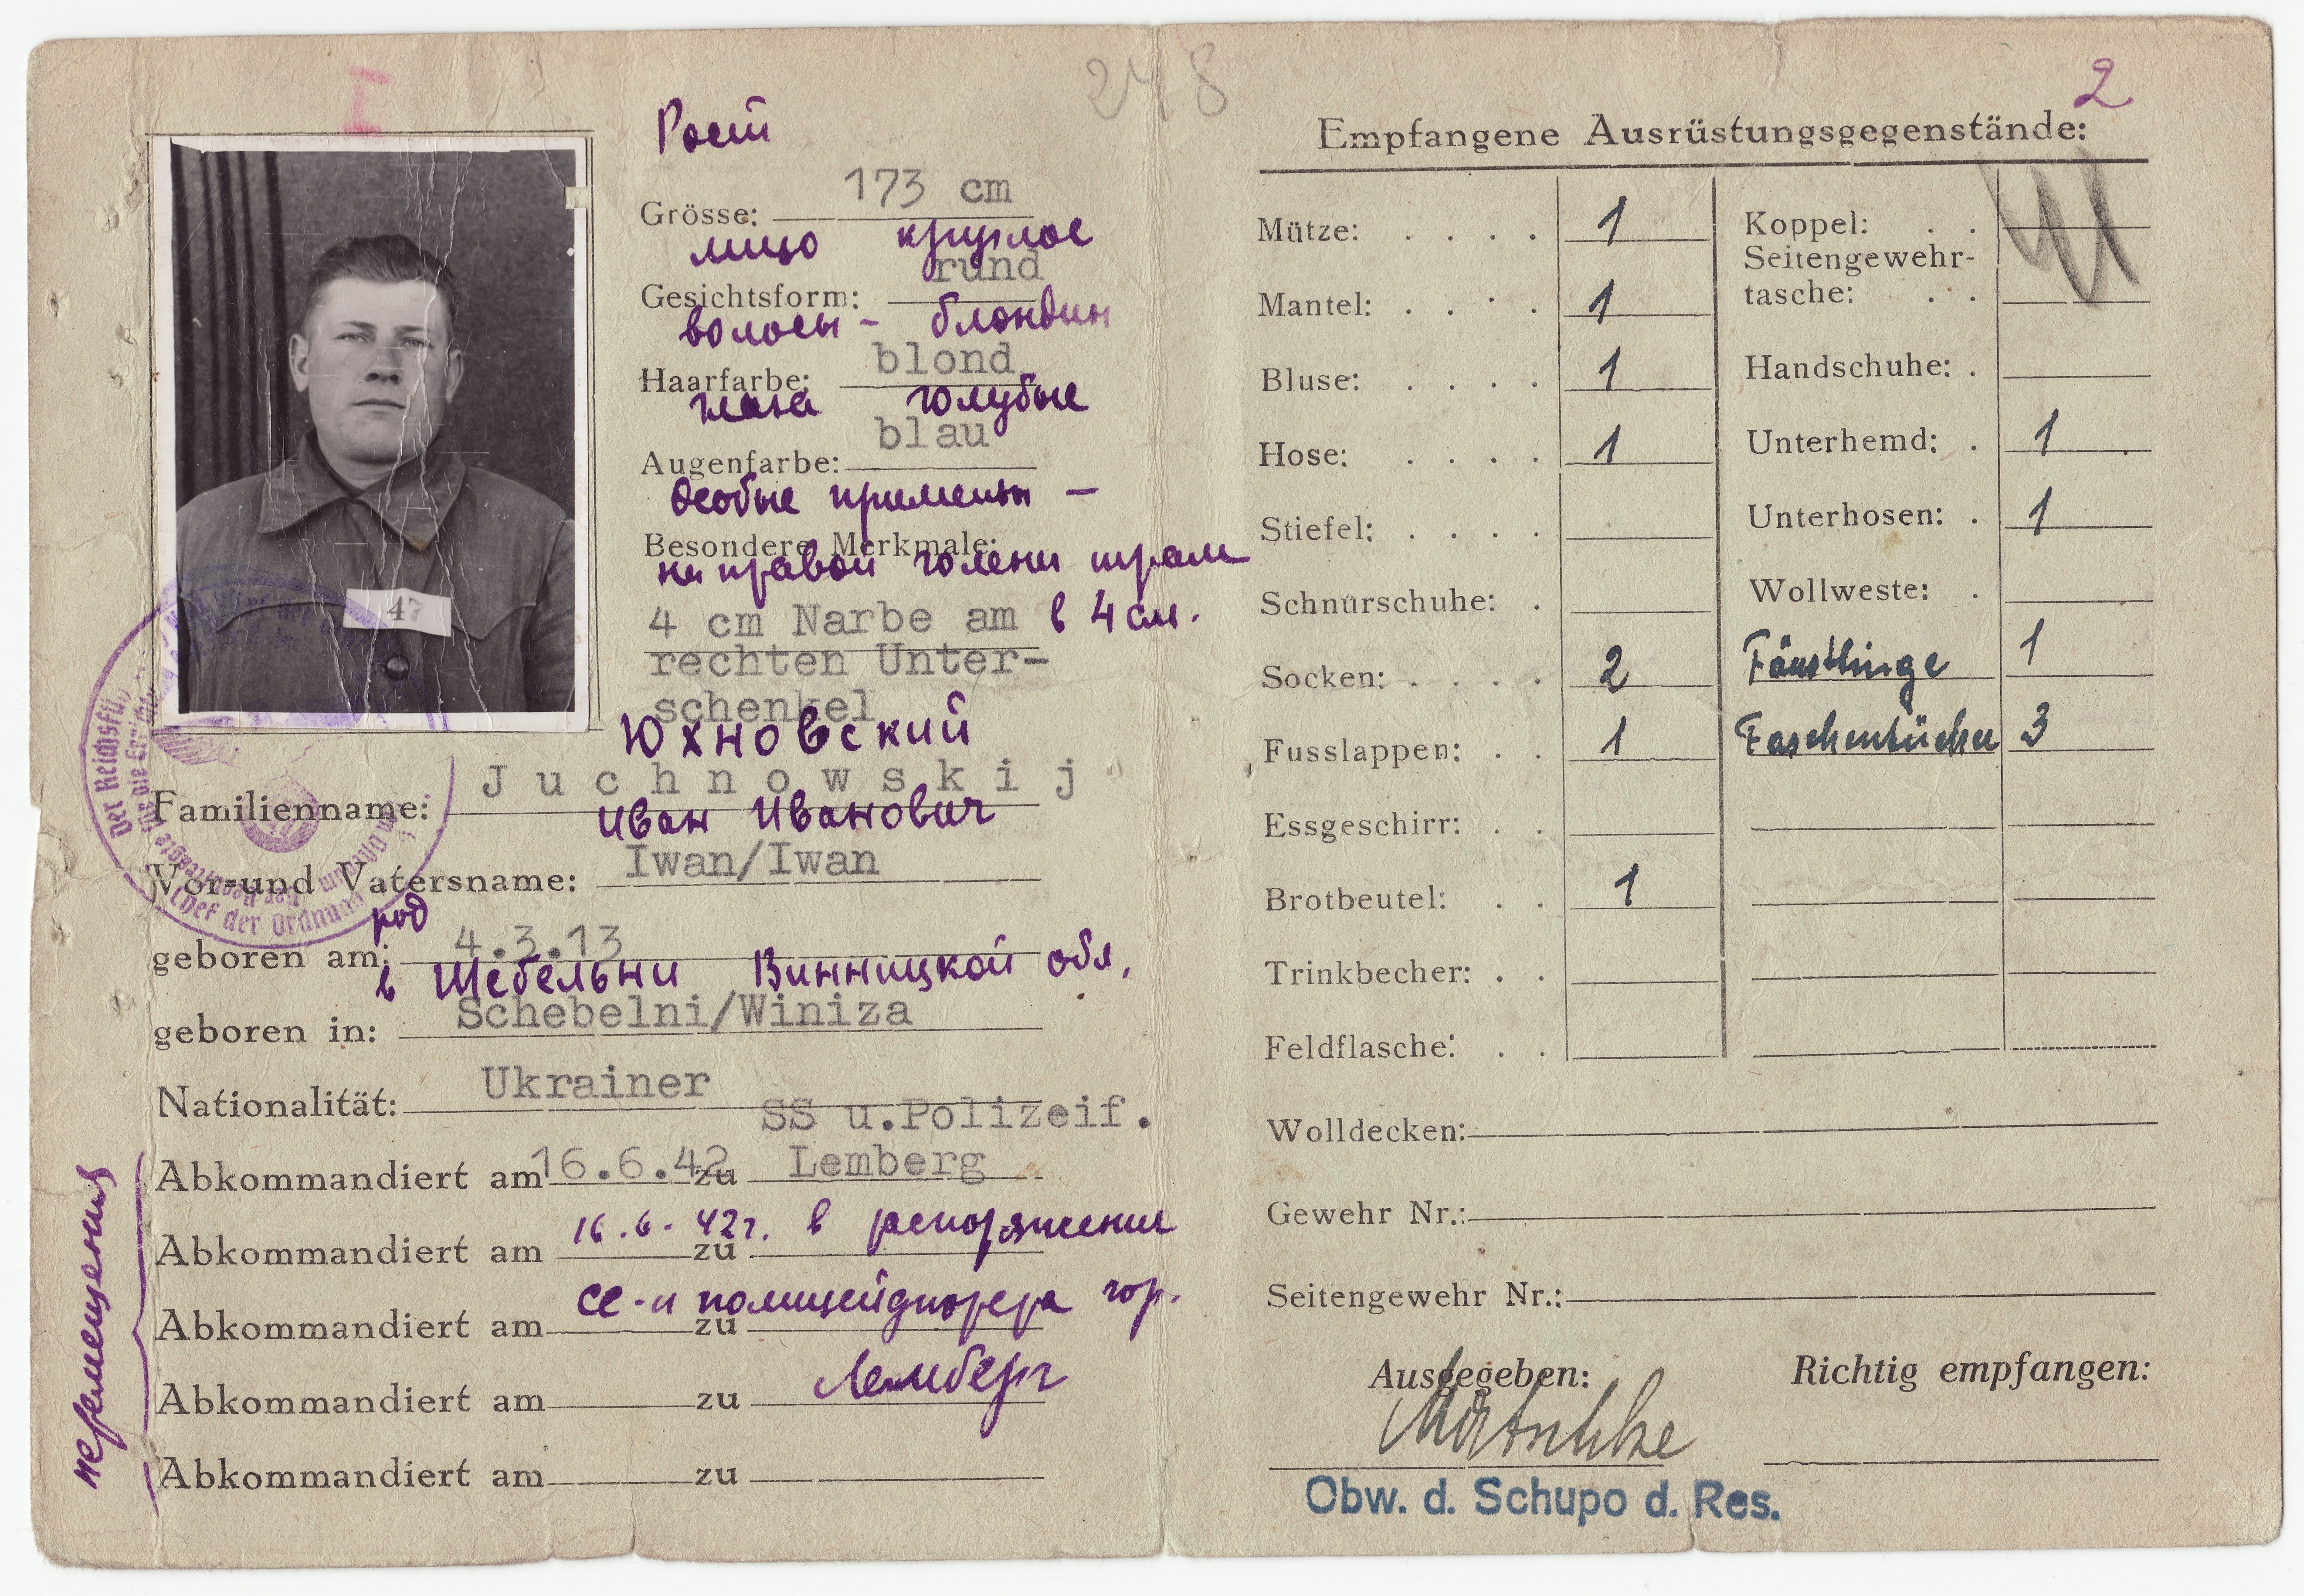 I
248
2
Рост
173 cm
Grösse:
лицо круглое
rund
Gesichtsform:
волосы - блондин
blond
Haarfarbe:
глаза голубые
blau
Augenfarbe:
Особые приметы —
Besondere Merkmale:
на правой голени шрам
4 cm Narbe am в 4 см.
rechten Unter-
schenkel
47
Юхновский
Juchnowskij
Familienname:
Иван Иванович
Iwan/Iwan
Vor-und Vatersname:
род
4.3.13
geboren am:
в Шебельни Винницкой обл,
Schebelni/Winiza
geboren in:
Ukrainer
Nationalität:
SS u.Polizeif.
Abkommandiert am 16.6.42 zu Lemberg
16.6.42г. в распоряжение
Abkommandiert am zu
СС-и полицейфюрера гор.
Abkommandiert am zu
Лемберг
Abkommandiert am zu
Abkommandiert am zu
перемещения
Der Reichsfü
für die Err
Chef der Ordnung
Empfangene Ausrüstungsgegenstände:
Mütze: . . . . 1
Mantel: . . . 1
Bluse: . . . . 1
Hose: . . . . 1
Stiefel: . . . .
Schnürschuhe: .
Socken: . . . . 2
Fusslappen: . . 1
Essgeschirr: . .
Brotbeutel: . . 1
Trinkbecher: . .
Feldflasche: . .
Koppel: . .
Seitengewehr-
tasche: . .
Handschuhe: .
Unterhemd: . 1
Unterhosen: . 1
Wollweste: .
Fäustlinge 1
Taschentücher 3
Wolldecken:
Gewehr Nr.:
Seitengewehr Nr.:
Ausgegeben:
Richtig empfangen:
Obw. d. Schupo d. Res.